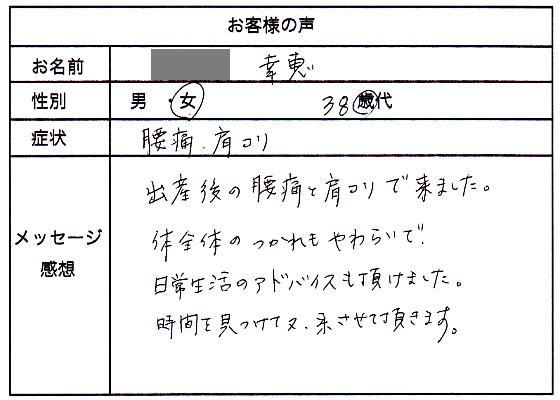 お客様の声
お名前 幸恵
性別 男・女 38歳代
症状 腰痛、肩コリ
メッセージ
感想
出産後の腰痛と肩コリで来ました。
体全体のつかれもやわらいで、
日常生活のアドバイスも頂けました。
時間を見つけて又、来させて頂きます。